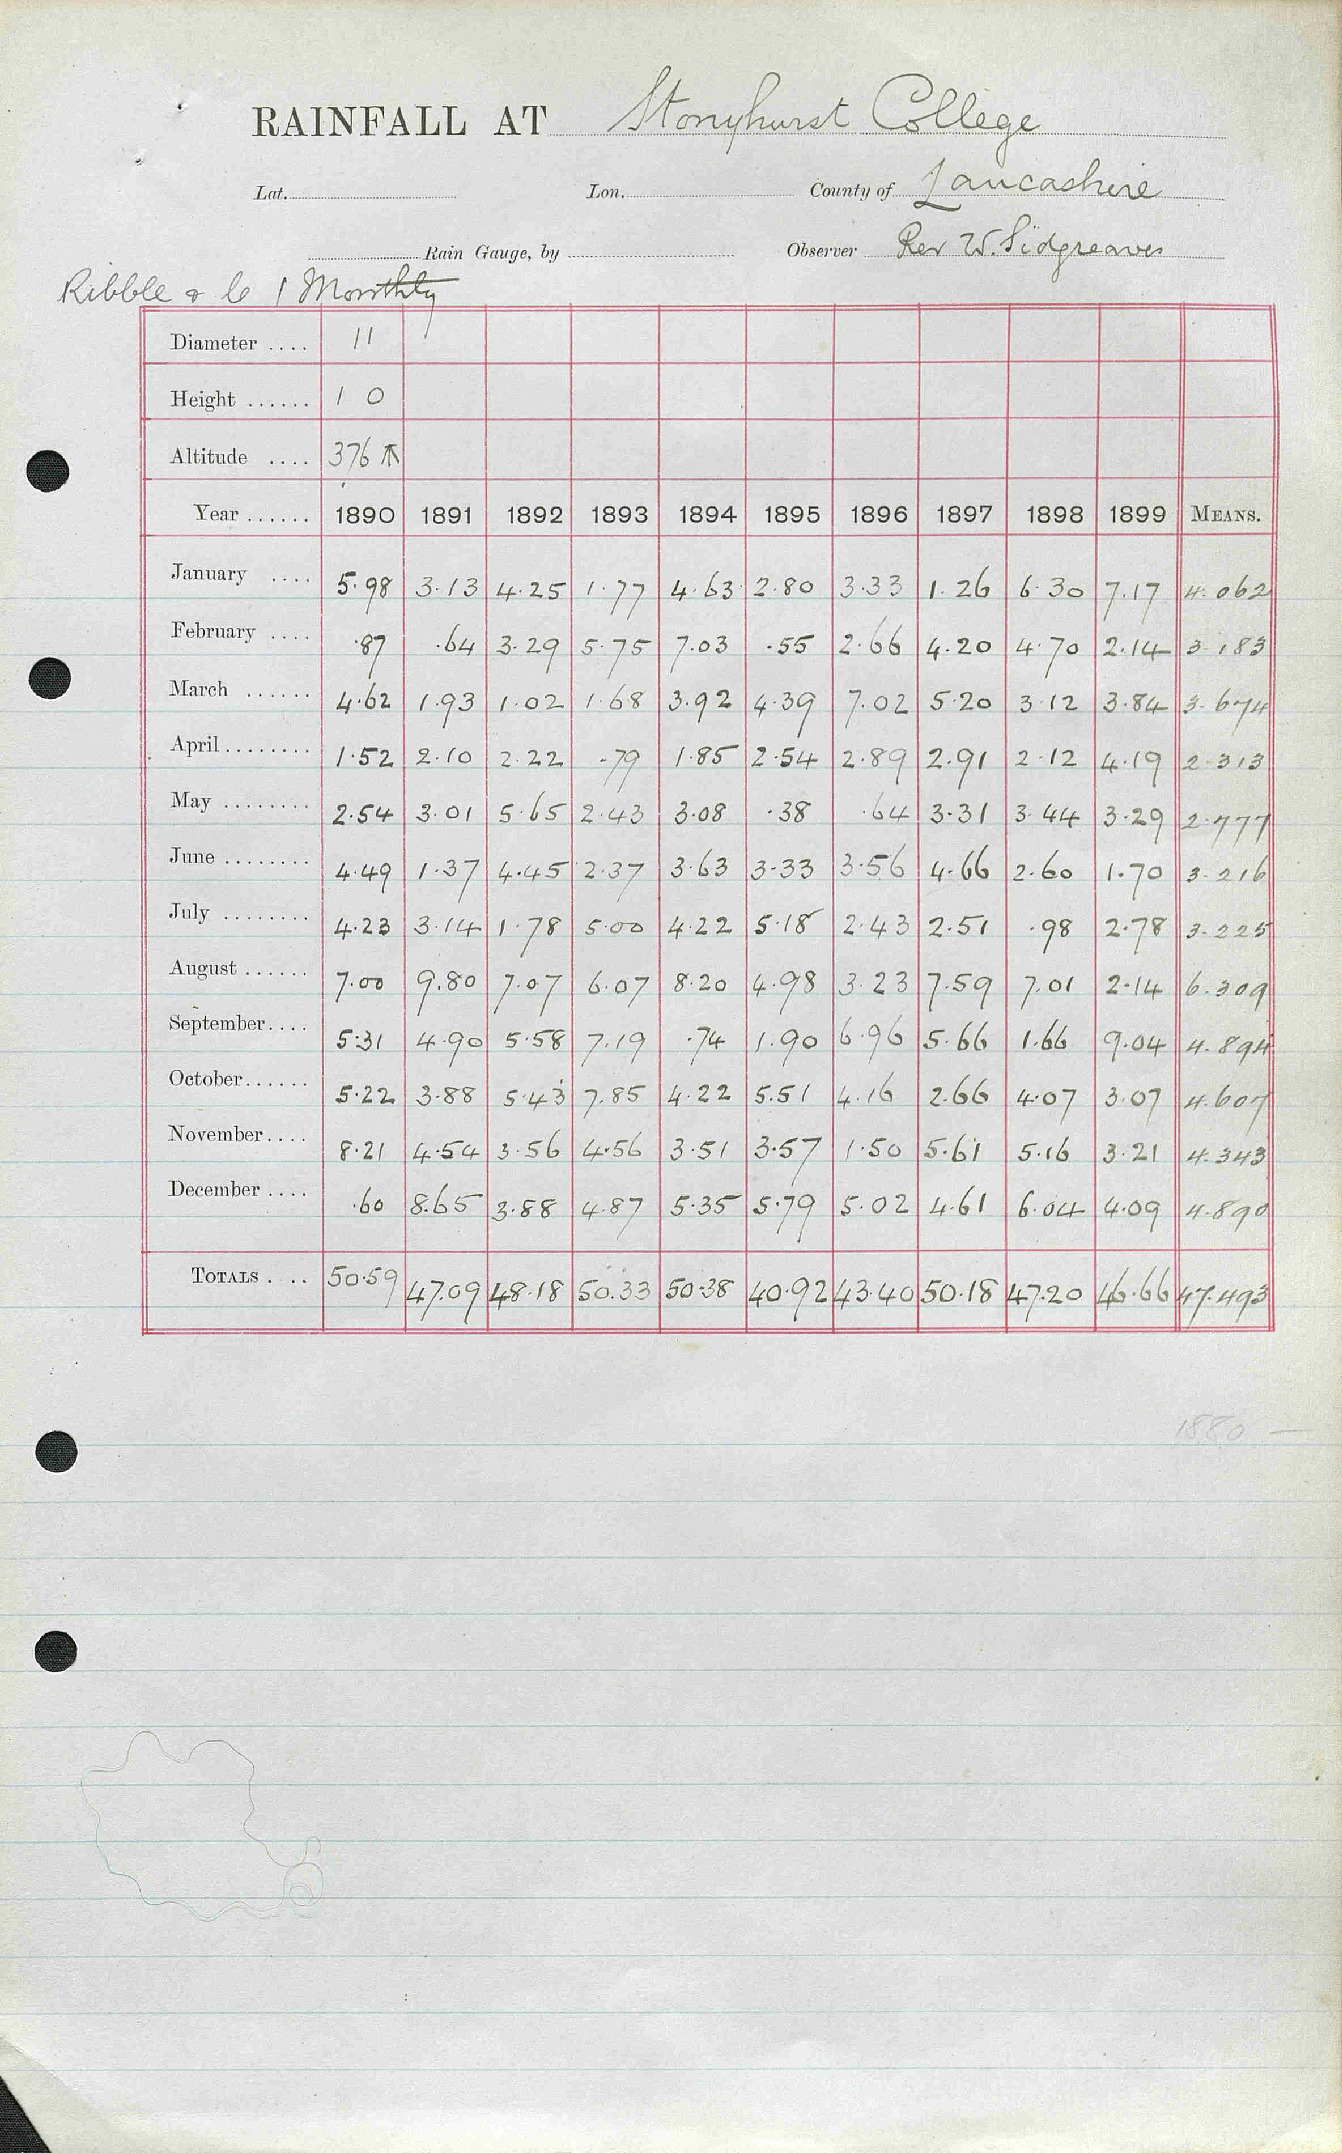 RAINFALL AT Stonyhurst College
Lat. Lon. County of Lancashire
Rain Gauge, by Observer Rev W. Sidgreaves
Ribble & 1 Monthly
Diameter .... 11
Height ...... 1 0
Altitude .... 376
Year ...... 1890 1891 1892 1893 1894 1895 1896 1897 1898 1899 MEANS.
January .... 5.98 3.13 4.25 1.77 4.63 2.80 3.33 1.26 6.30 7.17 4.062
February .... .87 .64 3.29 5.75 7.03 .55 2.66 4.20 4.70 2.14 3.183
March ...... 4.62 1.93 1.02 1.68 3.92 4.39 7.02 5.20 3.12 3.84 3.674
April ........ 1.52 2.10 2.22 .79 1.85 2.54 2.89 2.91 2.12 4.19 2.313
May ........ 2.54 3.01 5.65 2.43 3.08 .38 .64 3.31 3.44 3.29 2.777
June ........ 4.49 1.37 4.45 2.37 3.63 3.33 3.56 4.66 2.60 1.70 3.216
July ........ 4.23 3.14 1.78 5.00 4.22 5.18 2.43 2.51 .98 2.78 3.225
August ...... 7.00 9.80 7.07 6.07 8.20 4.98 3.23 7.59 7.01 2.14 6.309
September.... 5.31 4.90 5.58 7.19 .74 1.90 6.96 5.66 1.66 9.04 4.894
October...... 5.22 3.88 5.43 7.85 4.22 5.51 4.16 2.66 4.07 3.07 4.607
November.... 8.21 4.54 3.56 4.56 3.51 3.57 1.50 5.61 5.16 3.21 4.343
December .... .60 8.65 3.88 4.87 5.35 5.79 5.02 4.61 6.04 4.09 4.890
TOTALS .... 50.59 47.09 48.18 50.33 50.38 40.92 43.40 50.18 47.20 46.66 47.493
1880 —